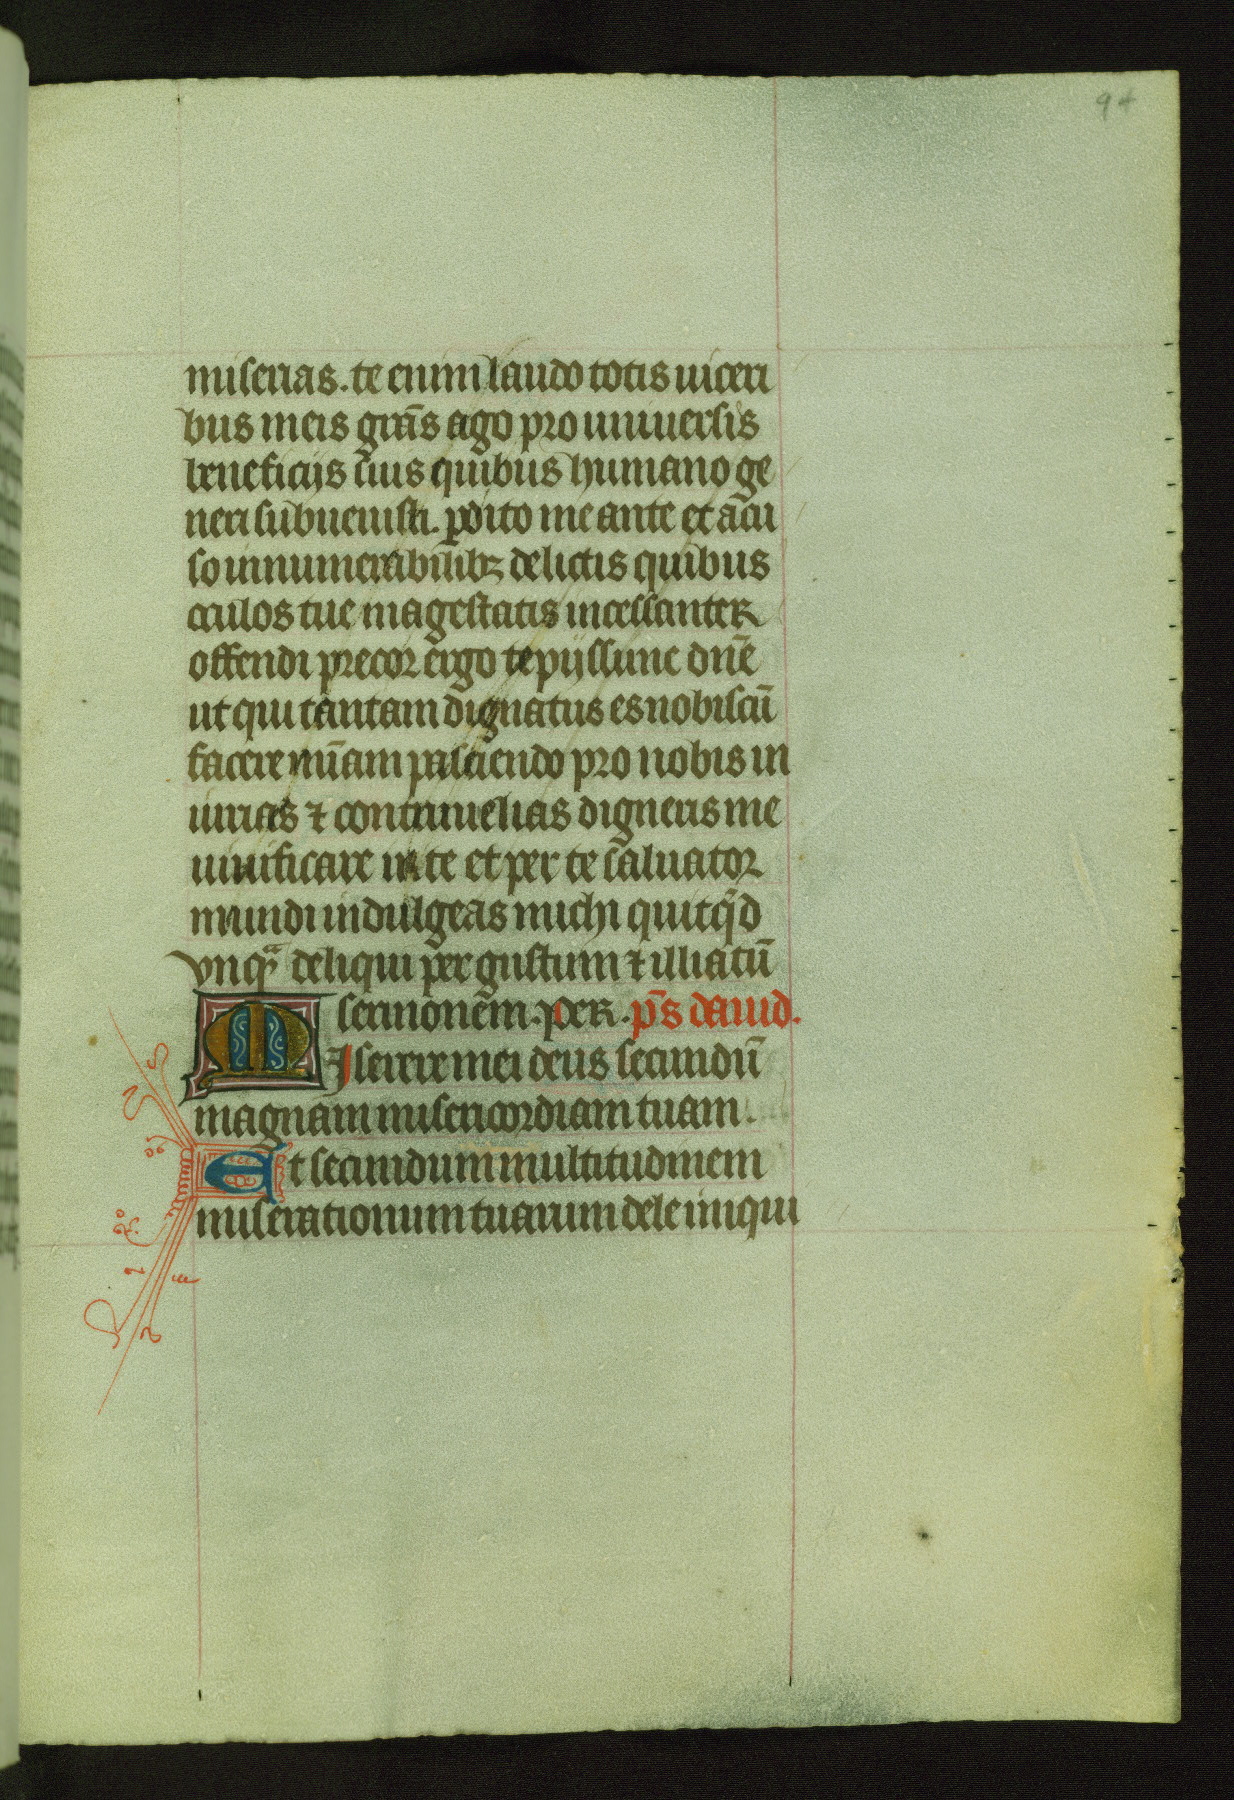 94
miserias. te enim laudo totis uiceri
bus meis grās ago pro uniuersis
beneficijs cuius quibus humano ge
neri subuenisti. ꝑdito me ante et accu
so innumerabilibꝫ delictis quibus
oculos tue magestatis incessanter
offendi precor ergo te pijssime dn̄e
ut qui tantam dignatus es nobiscū
facere nū̄am pasciendo pro nobis in
iurias ⁊ contumelias digneris me
uiuificare in te et per te saluator
mundi indulgeas michi quitqͥd
vnqͣ deliqui per gustum ⁊ illiatū
sermonem. pater. ps̄ dauid.
Miserere mei deus secundū
magnam misericordiam tuam.
Et secundum multitudinem
miserationum tuarum dele iniqui